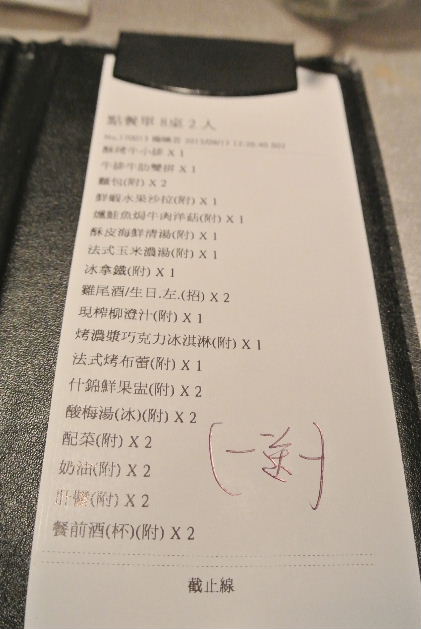 點餐單 8桌 2 人
酥烤牛小排 X 1
牛排牛肋雙拼 X 1
麵包(附) X 2
鮮蝦水果沙拉(附) X 1
燻鮭魚焗牛肉洋菇(附) X 1
酥皮海鮮清湯(附) X 1
法式玉米濃湯(附) X 1
冰拿鐵(附) X 1
雞尾酒/生日.左.(招) X 2
現榨柳澄汁(附) X 1
烤濃漿巧克力冰淇淋(附) X 1
法式烤布蕾(附) X 1
什錦鮮果盅(附) X 2
酸梅湯(冰)(附) X 2
配菜(附) X 2
奶油(附) X 2
(附) X 2
餐前酒(杯)(附) X 2
截止線